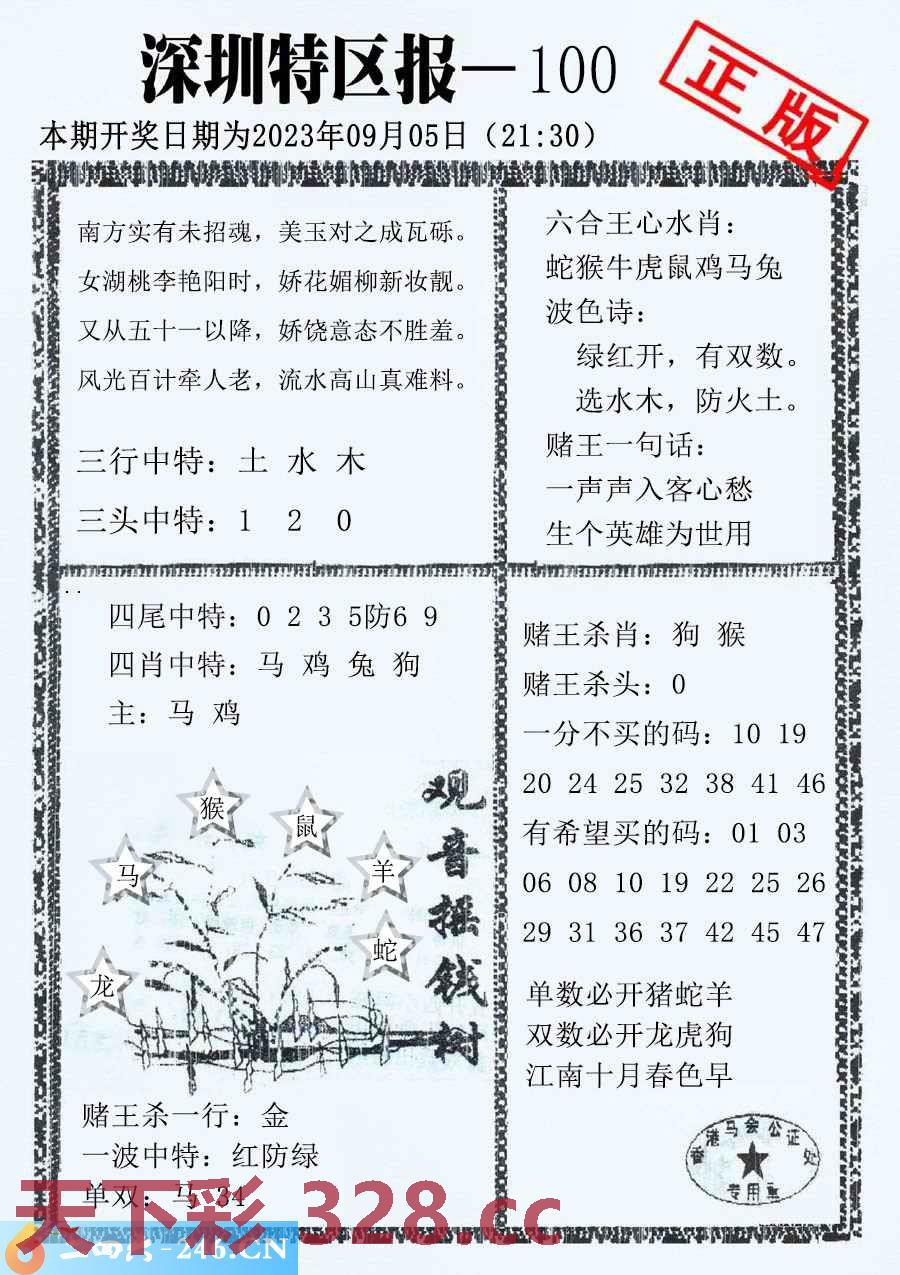 深圳特区报—100
正版
本期开奖日期为2023年09月05日（21:30）
南方实有未招魂，美玉对之成瓦砾。
女湖桃李艳阳时，娇花媚柳新妆靓。
又从五十一以降，娇饶意态不胜羞。
风光百计牵人老，流水高山真难料。
三行中特：土 水 木
三头中特：1 2 0
六合王心水肖：
蛇猴牛虎鼠鸡马兔
波色诗：
绿红开，有双数。
选水木，防火土。
赌王一句话：
一声声入客心愁
生个英雄为世用
四尾中特：0 2 3 5防6 9
四肖中特：马 鸡 兔 狗
主：马 鸡
观音摇钱树
猴
鼠
马
羊
蛇
龙
赌王杀一行：金
一波中特：红防绿
单双：马 34
赌王杀肖：狗 猴
赌王杀头：0
一分不买的码：10 19
20 24 25 32 38 41 46
有希望买的码：01 03
06 08 10 19 22 25 26
29 31 36 37 42 45 47
单数必开猪蛇羊
双数必开龙虎狗
江南十月春色早
香港马会公证处
专用章
天下彩 328.cc
-246.CN